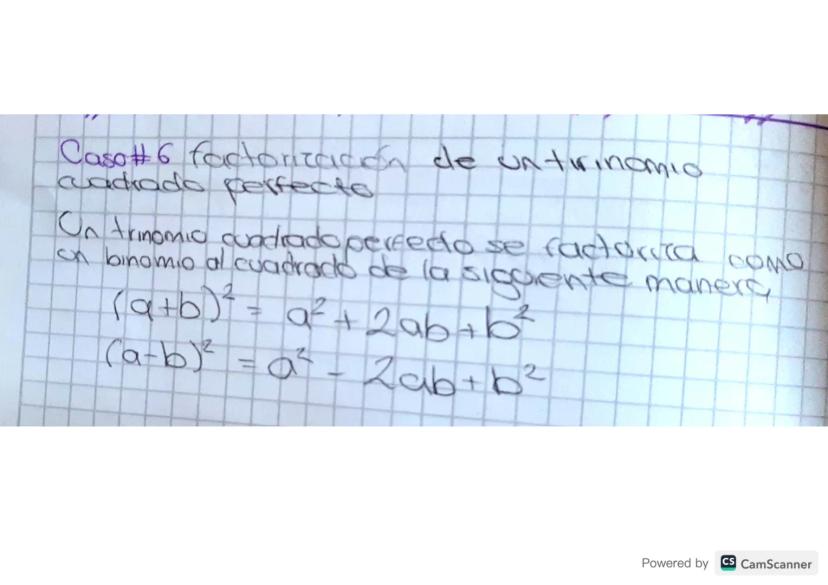 Caso #6 factorización de un trinomio
cuadrado perfecto
Un trinomio cuadrado perfecto se factoriza como
un binomio al cuadrado de la siguiente manera,
(a+b)² = a² + 2ab + b²
(a-b)² = a² - 2ab + b²
Powered by CS CamScanner